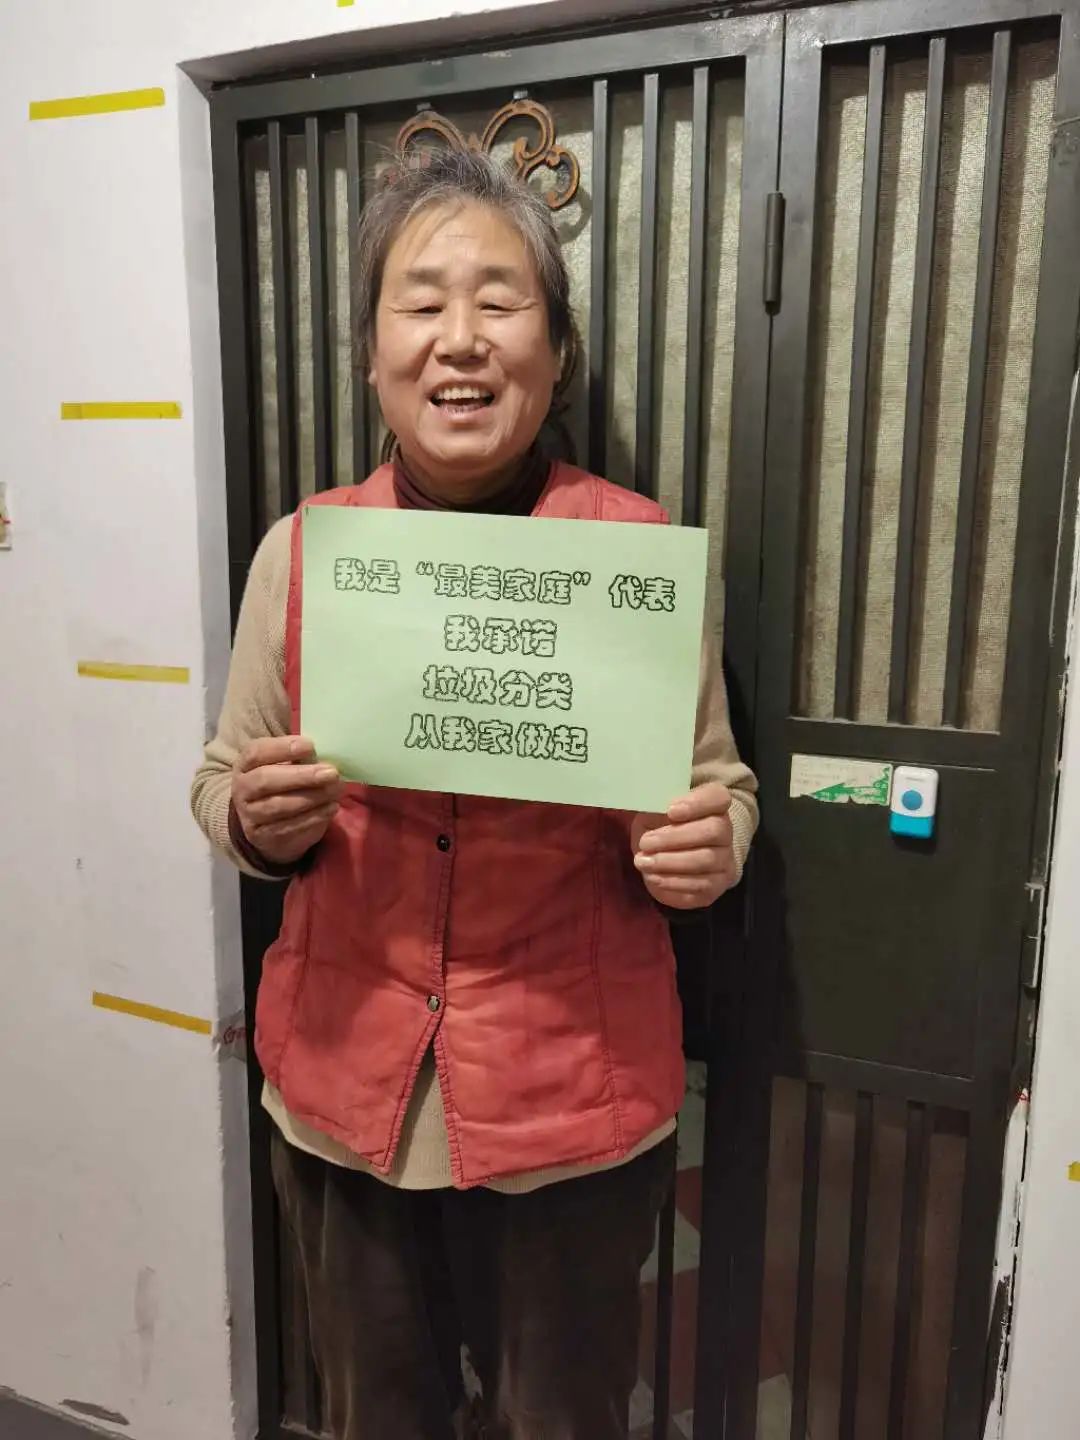 我是“最美家庭”代表
我承诺
垃圾分类
从我家做起